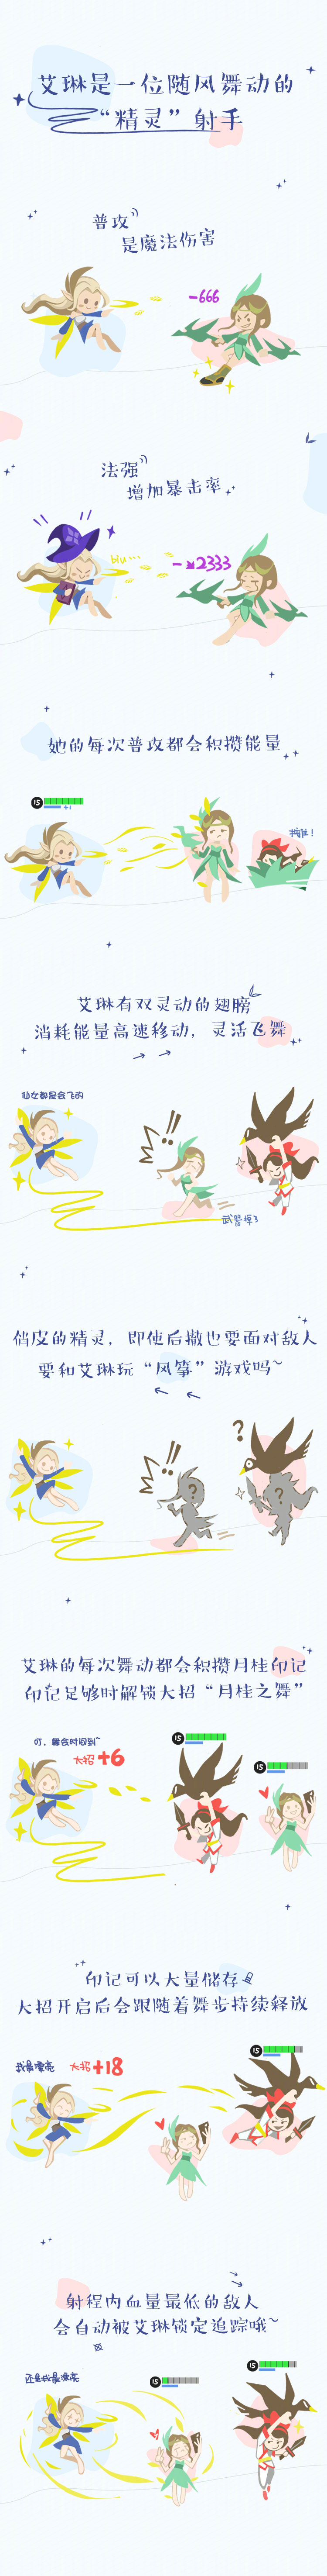 艾琳是一位随风舞动的
“精灵”射手
普攻
是魔法伤害
-666
法强
增加暴击率
biu…
2333
她的每次普攻都会积攒能量
15
+1
艾琳有双灵动的翅膀
消耗能量高速移动，灵活飞舞
仙女都是会飞的
!!
武器掉了
俏皮的精灵，即使后撤也要面对敌人
要和艾琳玩“风筝”游戏吗~
!!
?
?
?
艾琳的每次舞动都会积攒月桂印记
印记足够时解锁大招“月桂之舞”
叮，舞会时间到~
大招+6
15
15
印记可以大量储存
大招开启后会跟随着舞步持续释放
我最漂亮
大招+18
15
射程内血量最低的敌人
会自动被艾琳锁定追踪哦~
还是我最漂亮
15
15